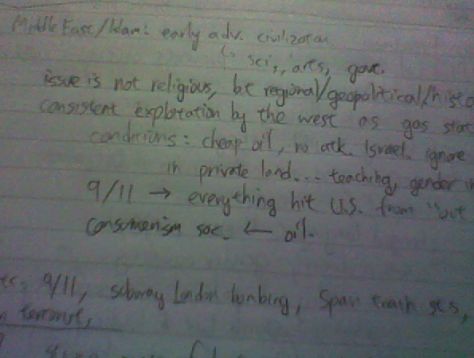 Middle East/Islam: early adv. civilization
↳ sci's, arts, gove.
issue is not religious, bt regional/geopolitical/histo
consistent exploitation by the west as gas stat
conditions: cheap oil, no atk. Israel. ignore
in private land... teaching, gender
9/11 → everything hit U.S. from "out
consumerism soc. ← oil.
9/11, subway London bombing, Span train
terrorist,